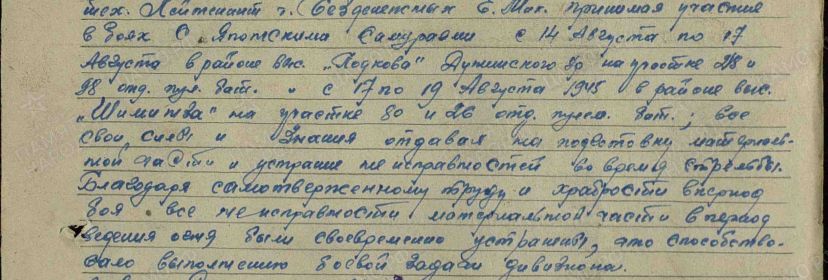 тех. Лейтенант т. Безденежных Б. Мих. принимая участие
в боях с Японскими Самураями с 14 Августа по 17
Августа в районе выс. „Подкова" Дунинского ур на участке 28 и
98 отд. пул. бат. и с 17 по 19 Августа 1945 в районе выс.
на участке 80 и 26 отд. пулем. бат.; все
свои силы и знания отдавая на подготовку материаль-
ной части и устране неисправностей во время стрельбы.
Благодаря самоотверженному труду и храбрости в период
боя все неисправности материальной части в период
ведения огня были своевременно устранены, это способство-
вало выполнению боевой задачи дивизиона.